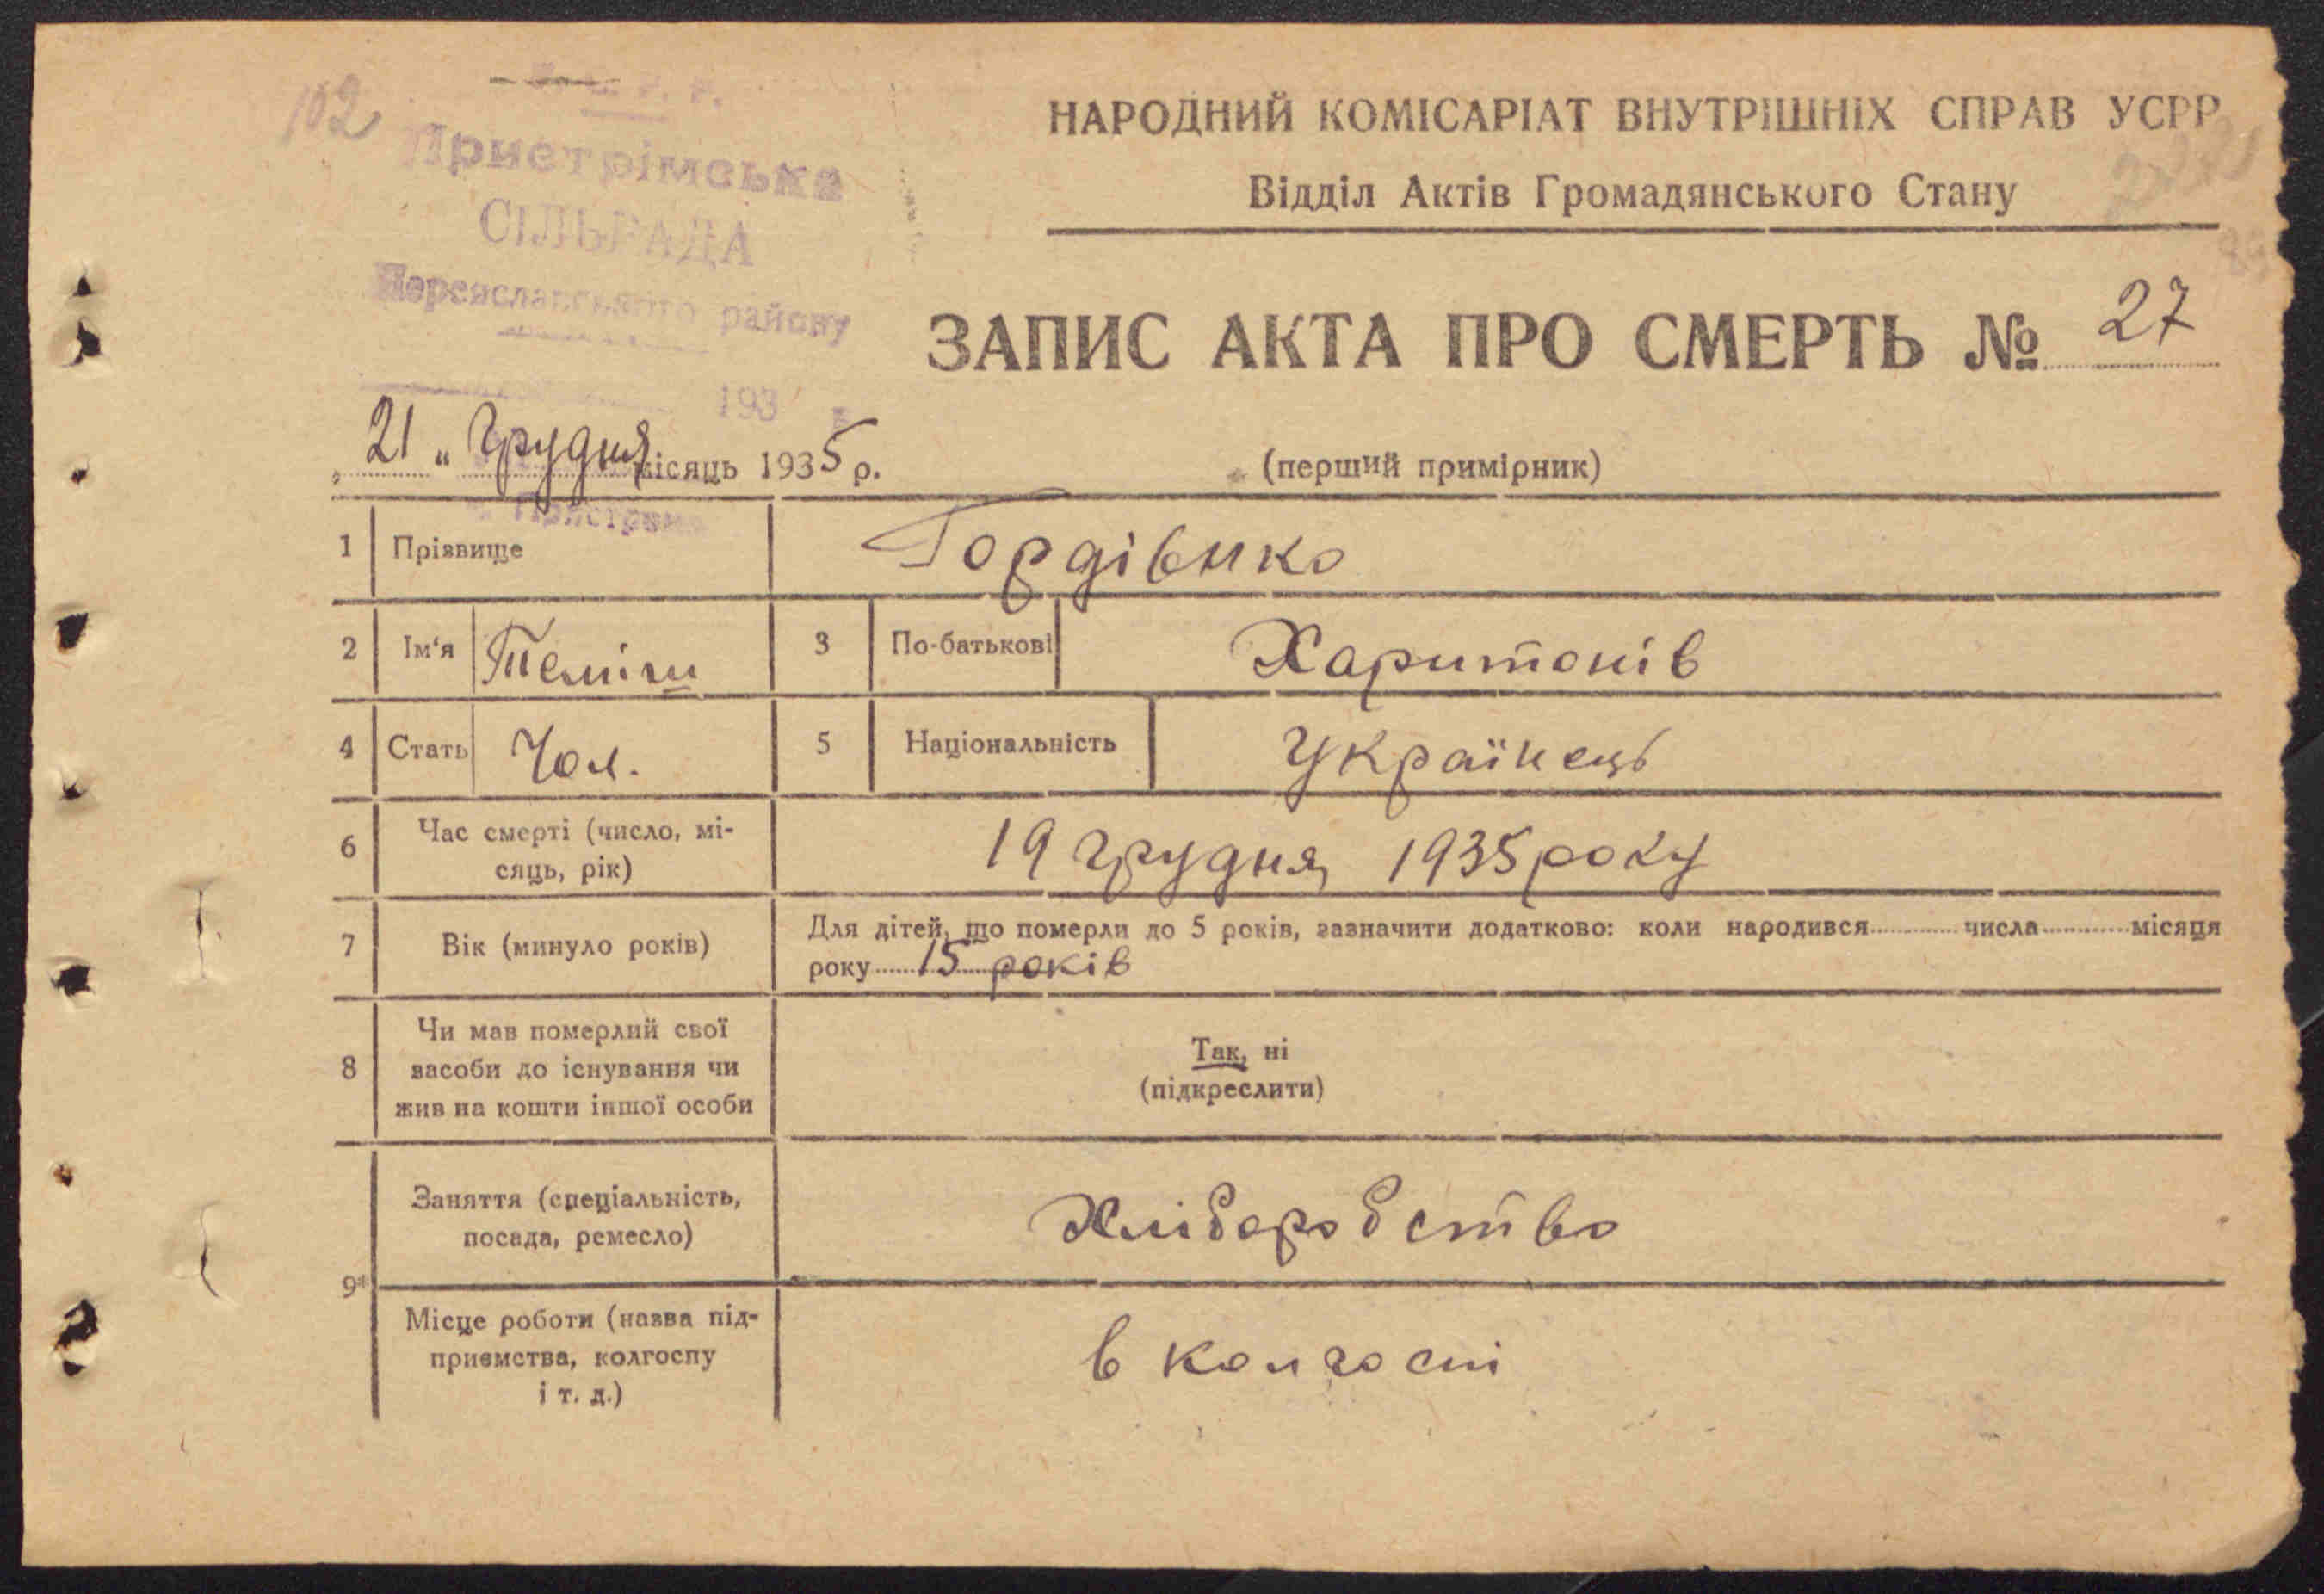 102
Пристрімська
СІЛЬРАДА
Переяславського району
193
НАРОДНИЙ КОМІСАРІАТ ВНУТРІШНІХ СПРАВ УСРР
Відділ Актів Громадянського Стану
ЗАПИС АКТА ПРО СМЕРТЬ № 27
„ 21 “ Грудня місяць 1935 р.
(перший примірник)
1 Прізвище Гордівнко
2 Ім‘я 3 По-батькові Харитонів
4 Стать Чол. 5 Національність Українець
6 Час смерті (число, мі-
сяць, рік) 19 грудня 1935 року
7 Вік (минуло років) Для дітей, що померли до 5 років, зазначити додатково: коли народився числа місяця
року 15 років
8 Чи мав померлий свої
засоби до існування чи
жив на кошти іншої особи
Так, ні
(підкреслити)
9*
Заняття (спеціальність,
посада, ремесло) Хліборобство
Місце роботи (назва під-
приємства, колгоспу
і т. д.) в колгоспі